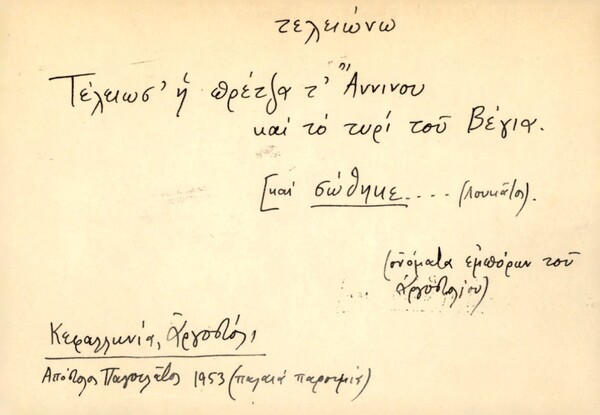 τελειώνω
Τέλειωσ' ἡ πρέτζα τ' Ἄννινου
καὶ τὸ τυρί τοῦ Βέγια.
[καὶ σώθηκε.... (Λουκᾶτος).
(ὀνόματα ἐμπόρων τοῦ
Ἀργοστολίου)
Κεφαλληνία, Ἀργοστόλι
Απόστολος 1953 (παλαιά παροιμία)